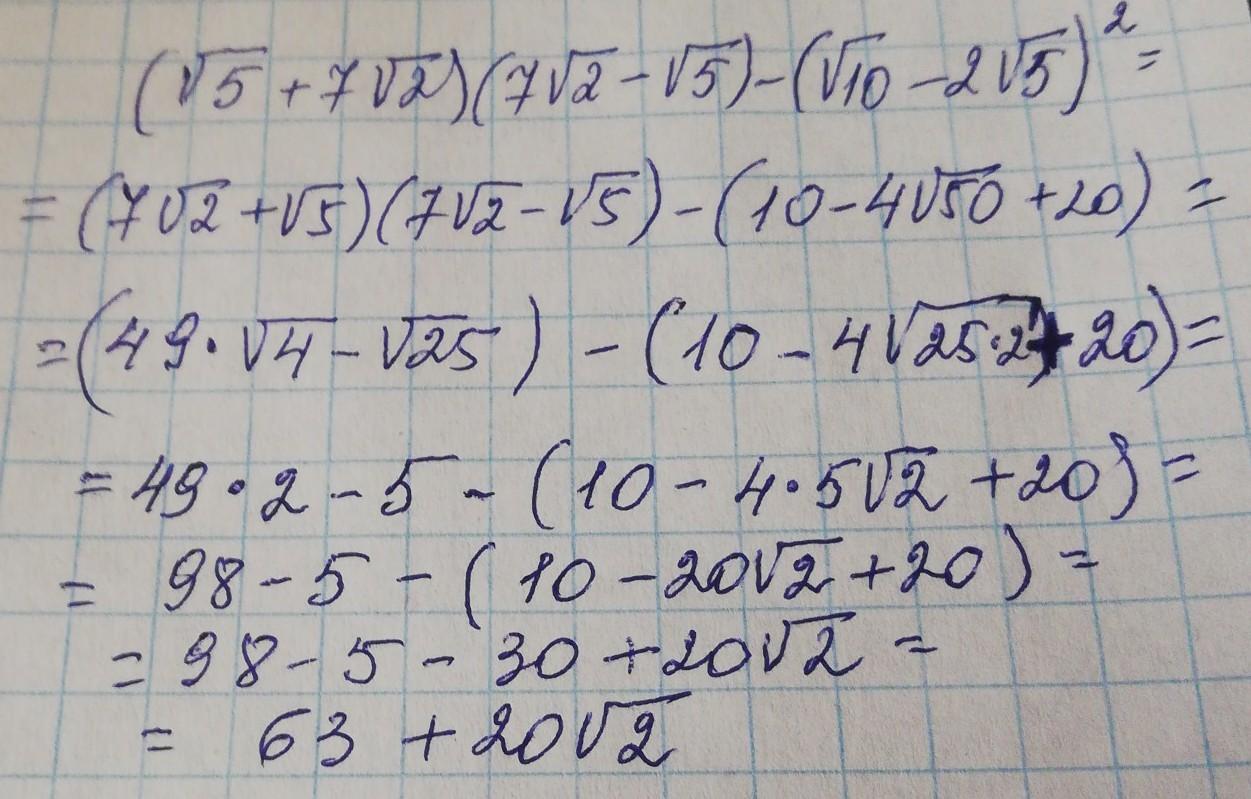 (√5 + 7√2)(7√2 - √5) - (√10 - 2√5)² =
= (7√2 + √5)(7√2 - √5) - (10 - 4√50 + 20) =
= (49·√4 - √25) - (10 - 4√25·2 + 20) =
= 49·2 - 5 - (10 - 4·5√2 + 20) =
= 98 - 5 - (10 - 20√2 + 20) =
= 98 - 5 - 30 + 20√2 =
= 63 + 20√2